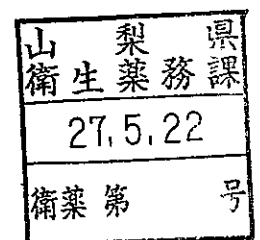 山梨県
衛生薬務課
27.5.22
衛薬第 号